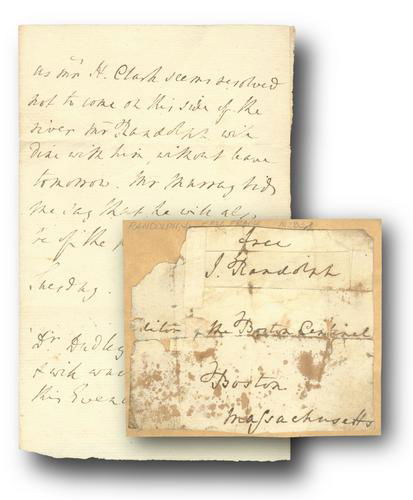 as Mr H. Clark seems resolved
not to come on this side of the
river Mr Randolph will
dine with him, without leave
tomorrow. Mr Murray bids
me say that he will also
be of the
Tuesday.
Dr Dudley
& will
this Evening
RANDOLPH
free
J. Randolph
Editor of the Boston Centinel
Boston
Massachusetts